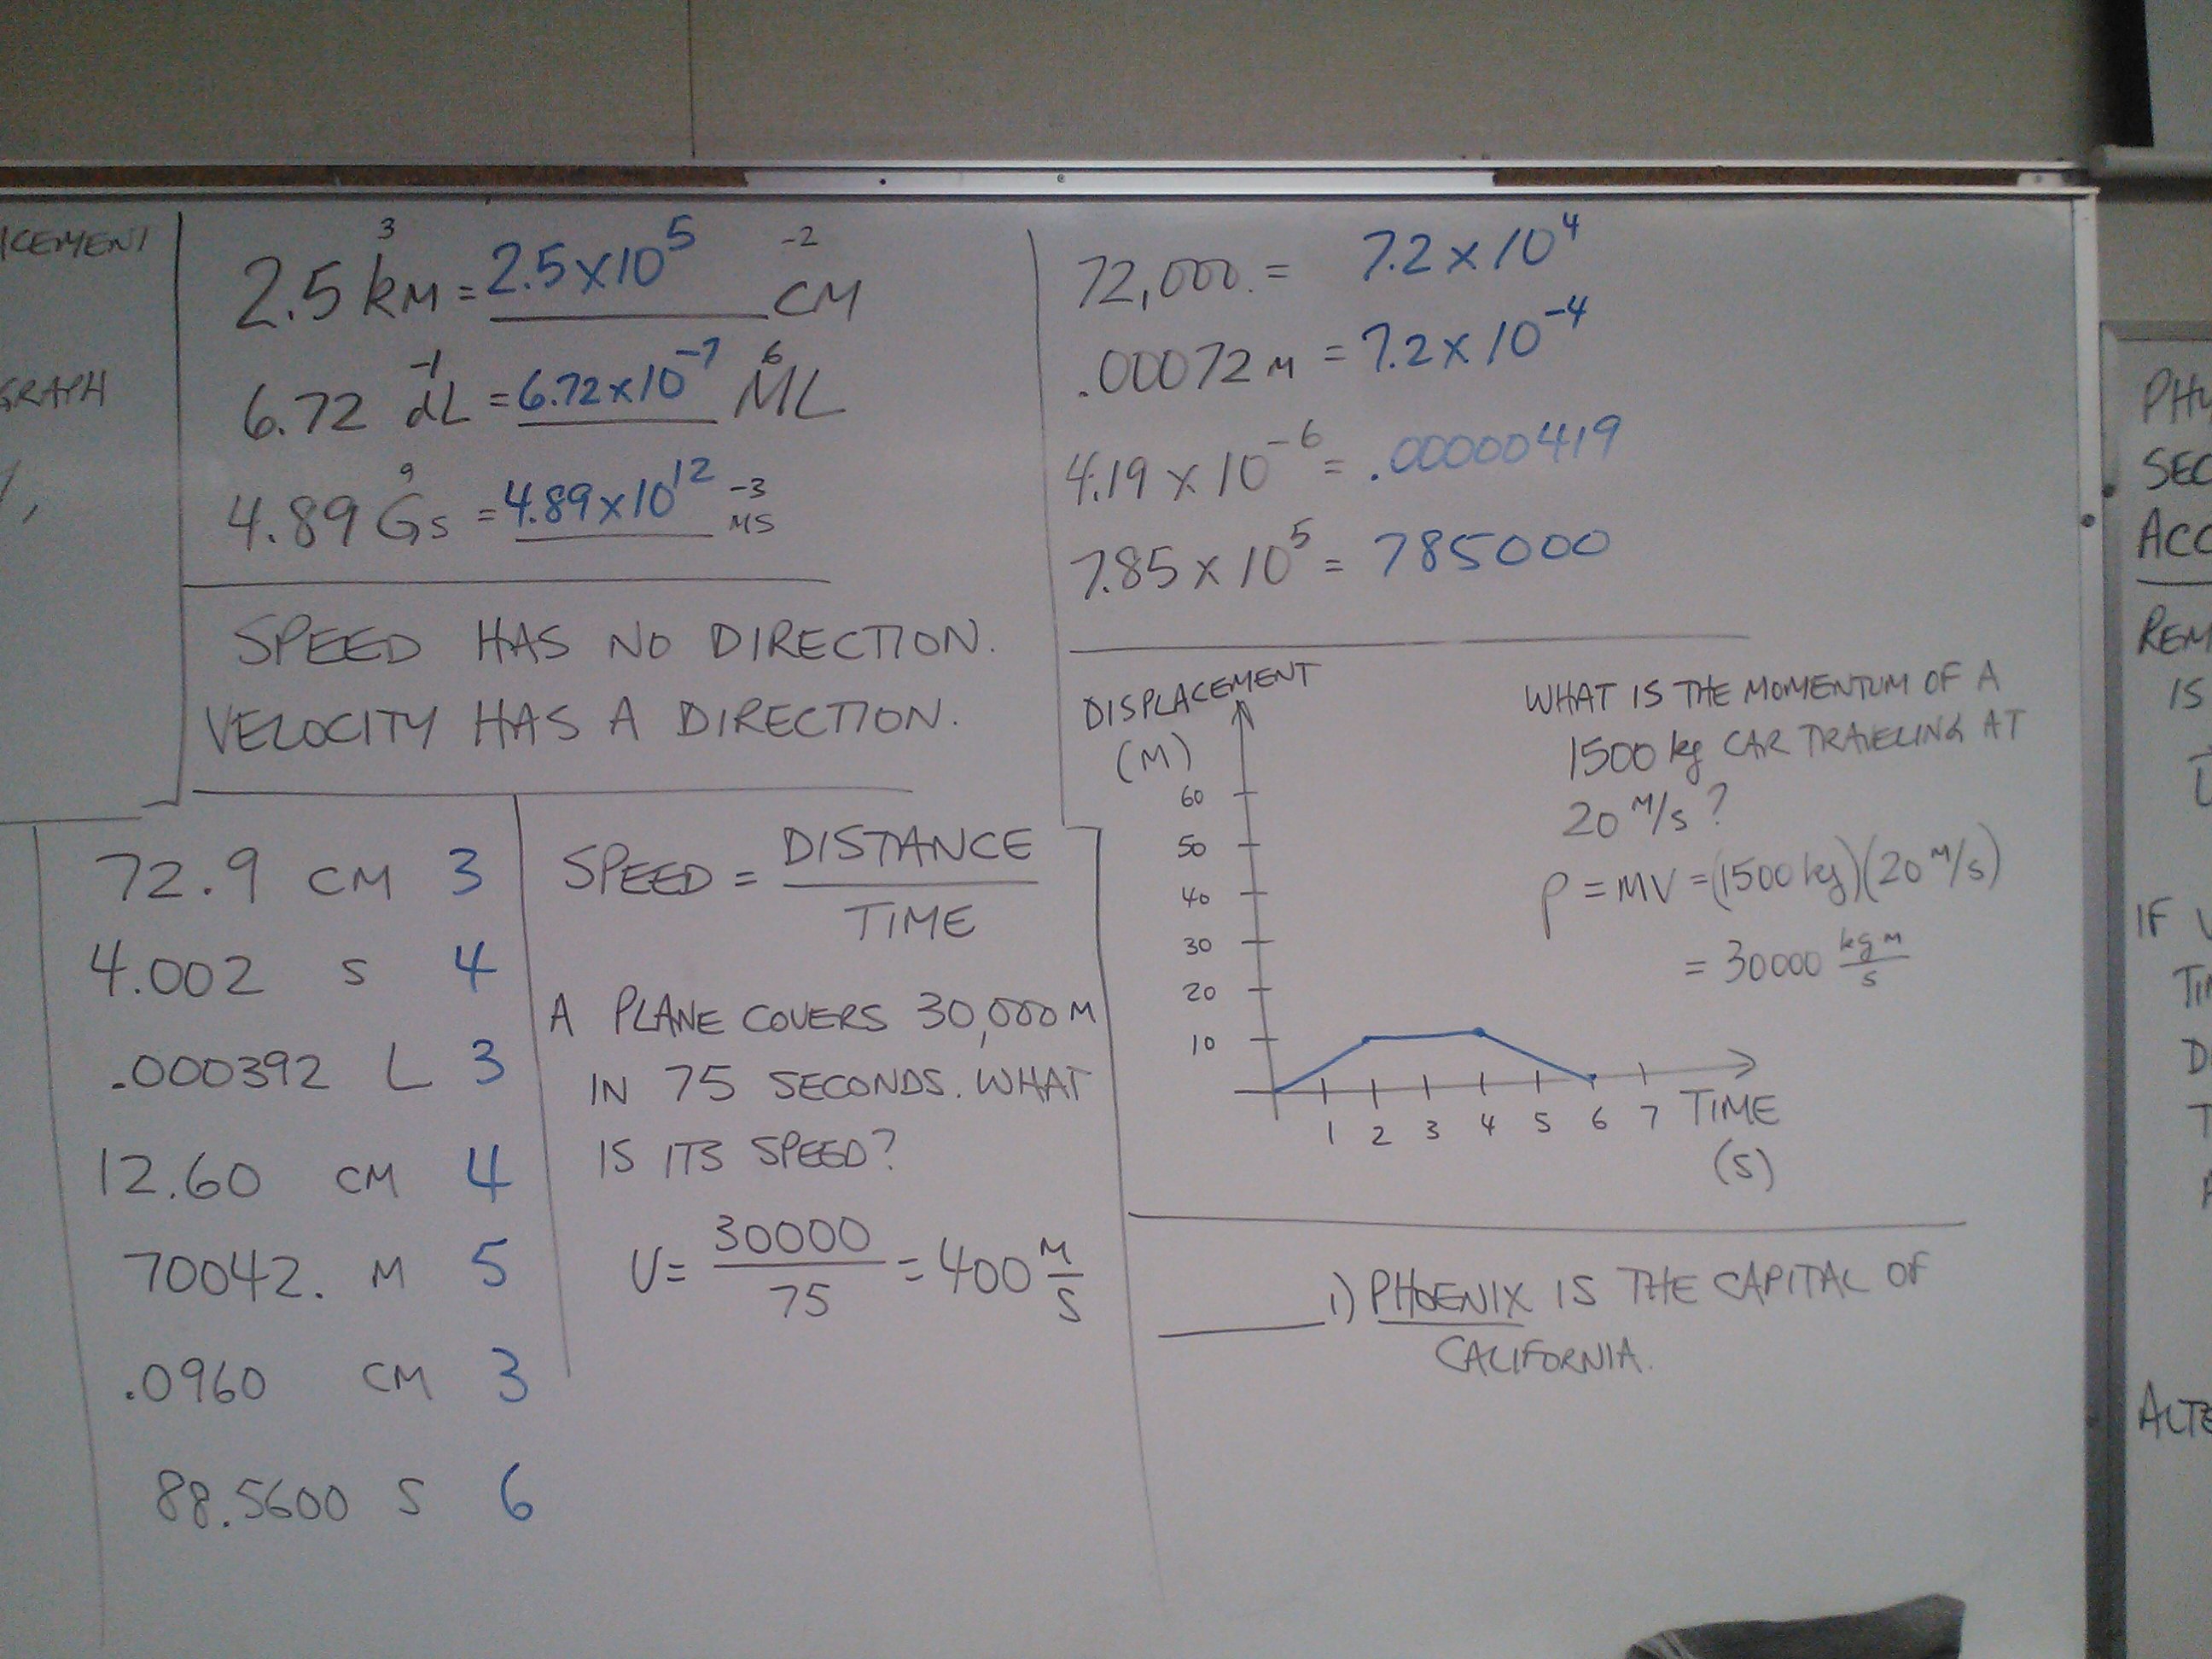 ICEMENT
GRAPH
3 -2
2.5 kM = 2.5x10^5 CM
-1 6
6.72 dL = 6.72x10^-7 ML
9 -3
4.89 Gs = 4.89x10^12 MS
SPEED HAS NO DIRECTION.
VELOCITY HAS A DIRECTION.
72.9 CM 3
4.002 S 4
.000392 L 3
12.60 CM 4
70042. M 5
.0960 CM 3
88.5600 S 6
SPEED = DISTANCE
TIME
A PLANE COVERS 30,000 M
IN 75 SECONDS. WHAT
IS ITS SPEED?
V = 30000/75 = 400 M/S
72,000. = 7.2 x 10^4
.00072 M = 7.2 x 10^-4
4.19 x 10^-6 = .00000419
7.85 x 10^5 = 785000
DISPLACEMENT
(M)
60
50
40
30
20
10
1 2 3 4 5 6 7 TIME
(S)
WHAT IS THE MOMENTUM OF A
1500 kg CAR TRAVELING AT
20 M/S?
P = MV = (1500 kg)(20 M/S)
= 30000 kg M/S
1) PHOENIX IS THE CAPITAL OF
CALIFORNIA.
PHY
SEC
ACC
REM
IS
IF
TIM
D
T
ALTE